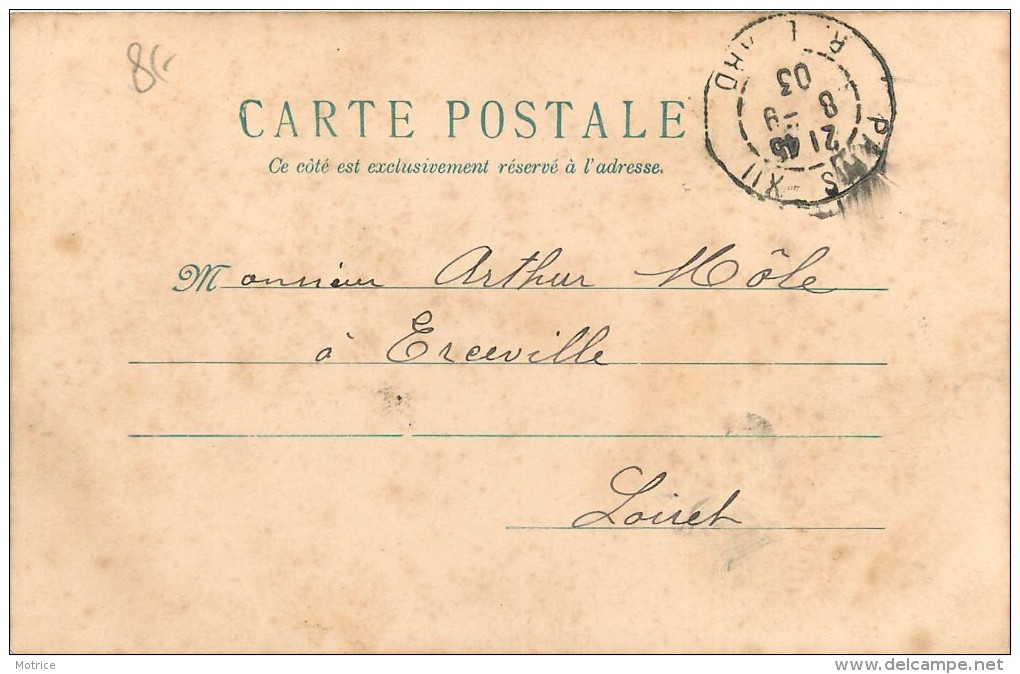 8/-
CARTE POSTALE
Ce côté est exclusivement réservé à l'adresse.
PARIS XII
21 45
8
03
Monsieur Arthur Môle
à Erceville
Loiret
Motrice
www.delcampe.net